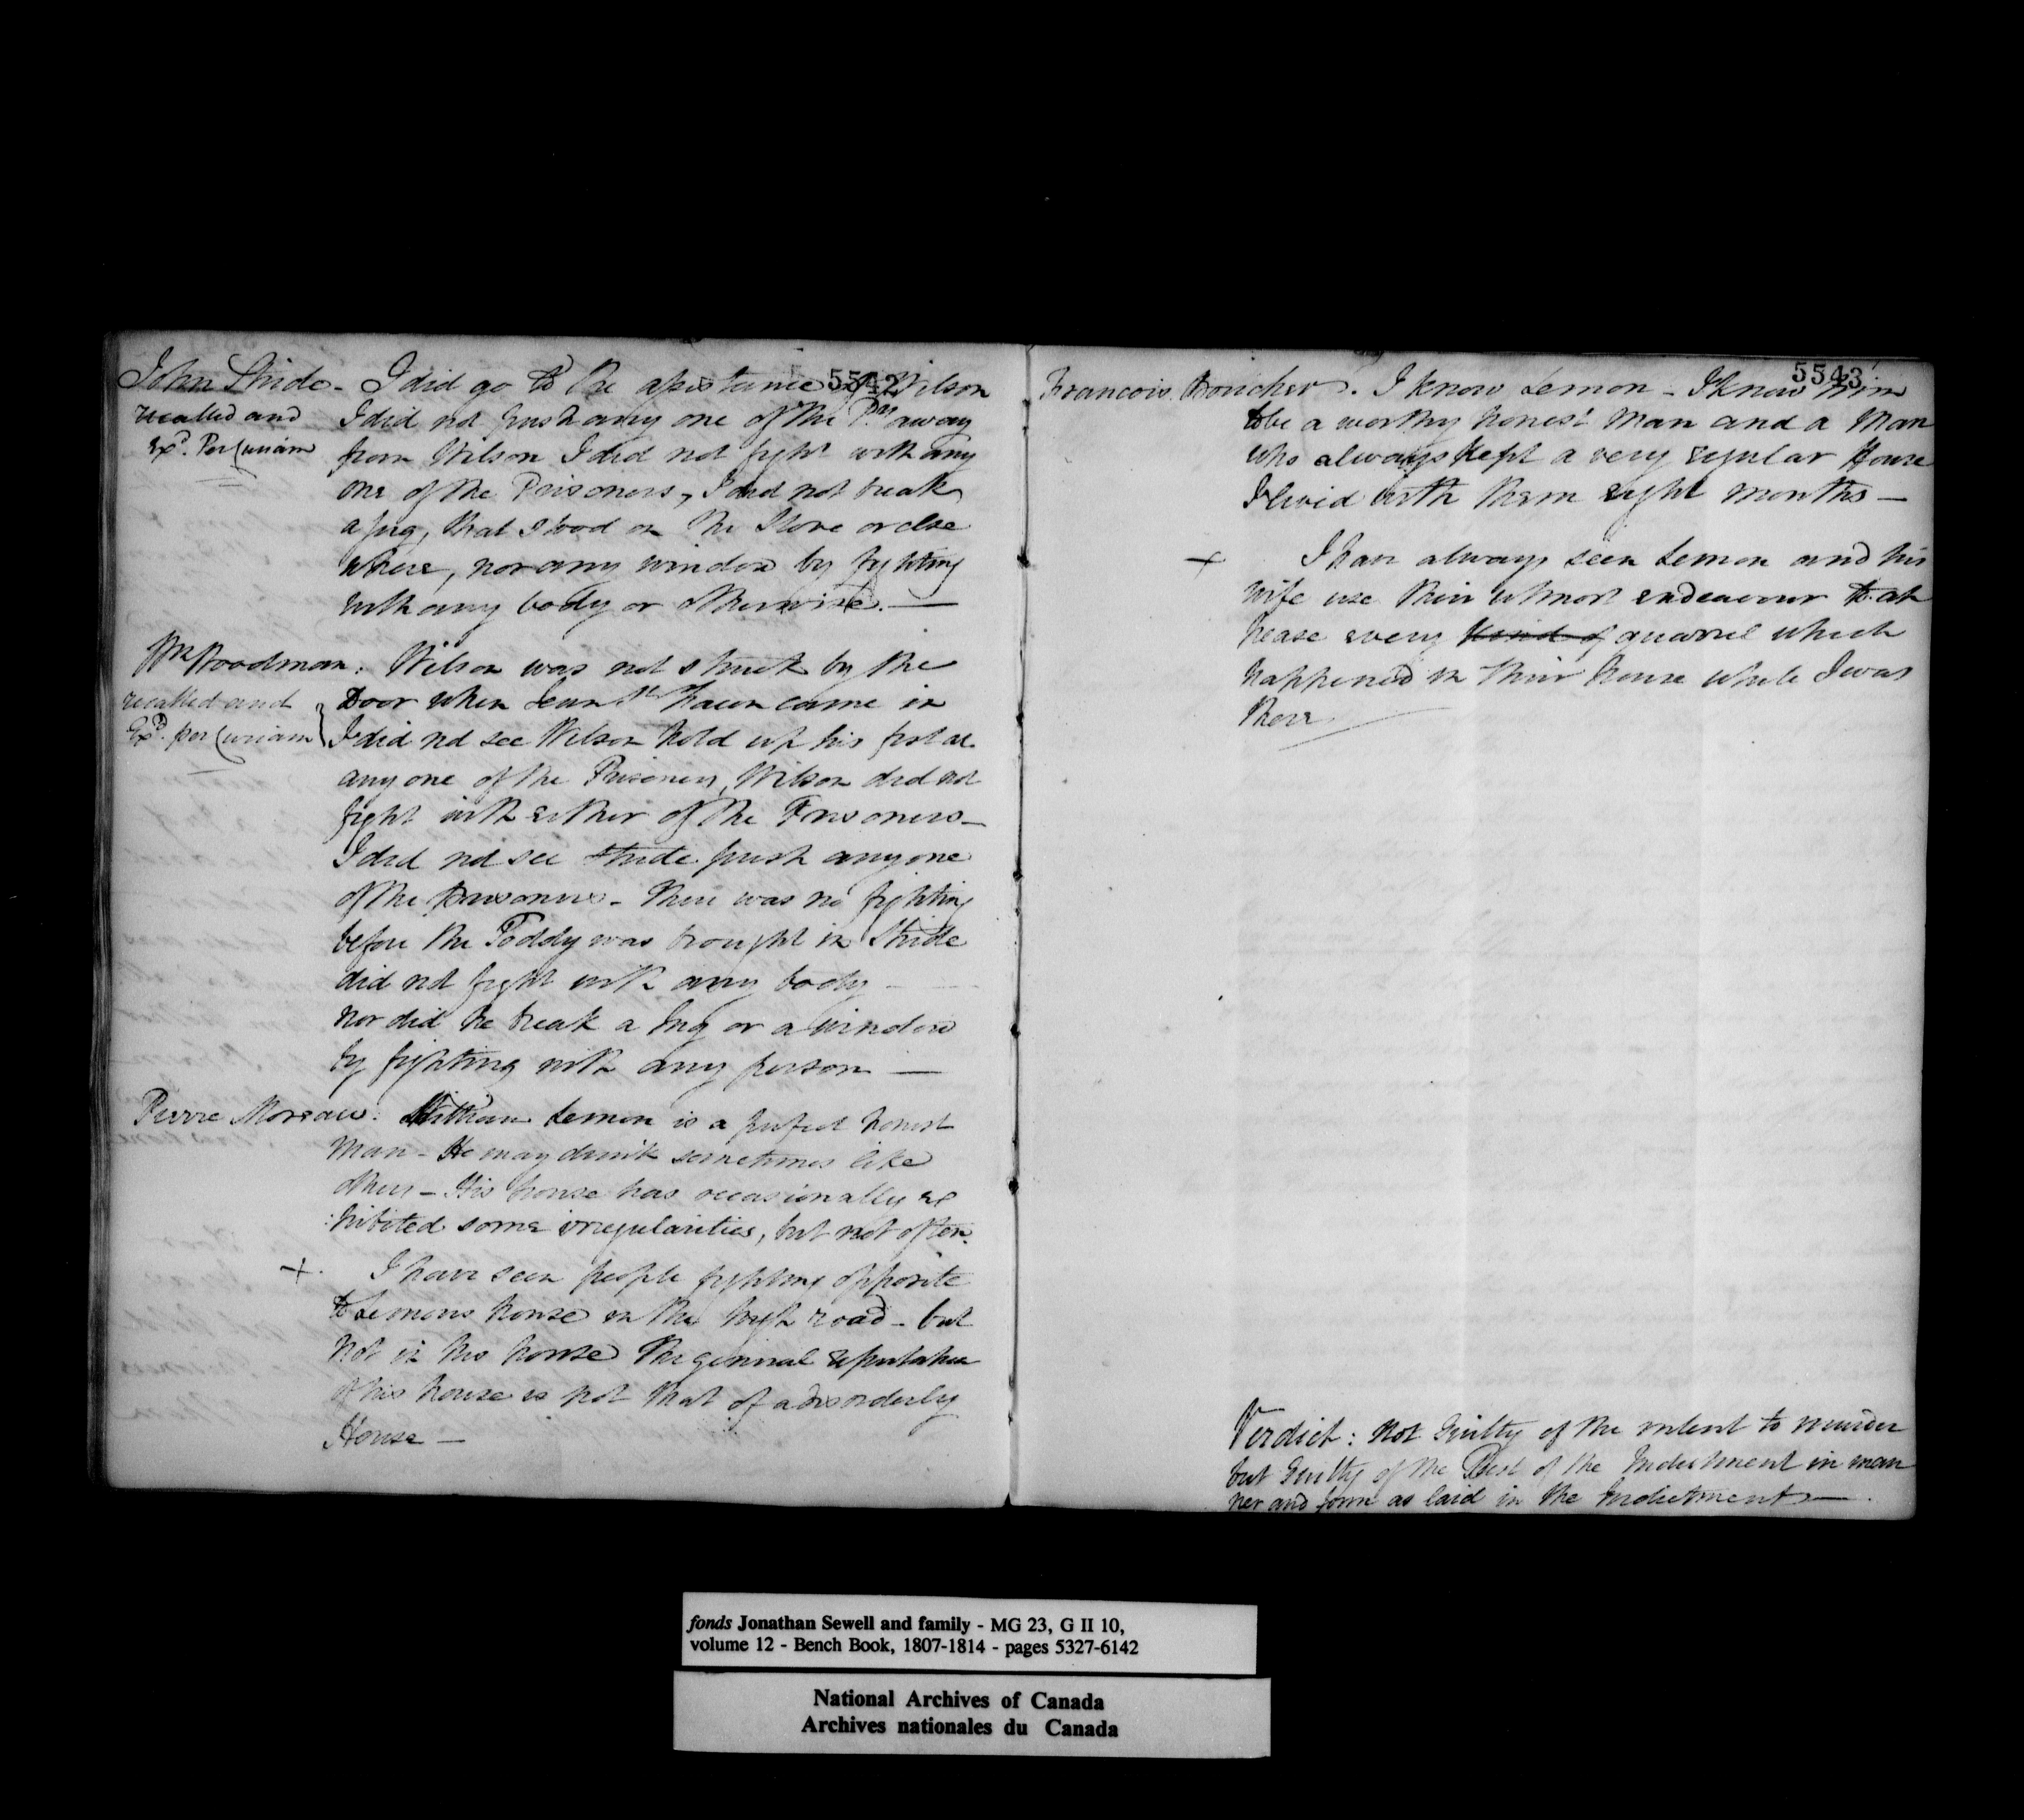 5542
John Stride - I did go to the assistance of Wilson
recalled and I did not push any one of the Prs away
Exd. Per Curiam from Wilson I did not fight with any
one of the Prisoners, I did not break
a jug, that stood on the Stove or else
where, nor any window by fighting
with any body or otherwise. —
Wm Woodman: Wilson was not struck by the
recalled and Door when Jean Bte came in
Exd. per Curiam I did not see Wilson hold up his fist at
any one of the Prisoners, Wilson did not
fight with either of the Prisoners -
I did not see Stride push any one
of the Prisoners - there was no fighting
before the Toddy was brought in Stride
did not fight with any body -
nor did he break a Jug or a window
by fighting with any person —
Pierre Moreau: William Lemon is a perfect honest
Man - He may drink sometimes like
others - His house has occasionally ex
:hibited some irregularities, but not often.
+. I have seen people fighting opposite
to Lemons house in the high road - but
not in his house The general reputation
of his house is not that of a disorderly
House —
5543
Francois Boucher. I know Lemon - I know him
to be a worthy honest Man and a Man
who always kept a very regular House
I lived with them eight months —
+ I have always seen Lemon and his
wife use their utmost endeavour to ap
pease every kind of quarrel which
happened in their house while I was
there
Verdict: Not Guilty of the intent to murder
but Guilty of the Rest of the Indictment in man
ner and form as laid in the Indictment —.
fonds Jonathan Sewell and family - MG 23, G II 10,
volume 12 - Bench Book, 1807-1814 - pages 5327-6142
National Archives of Canada
Archives nationales du Canada